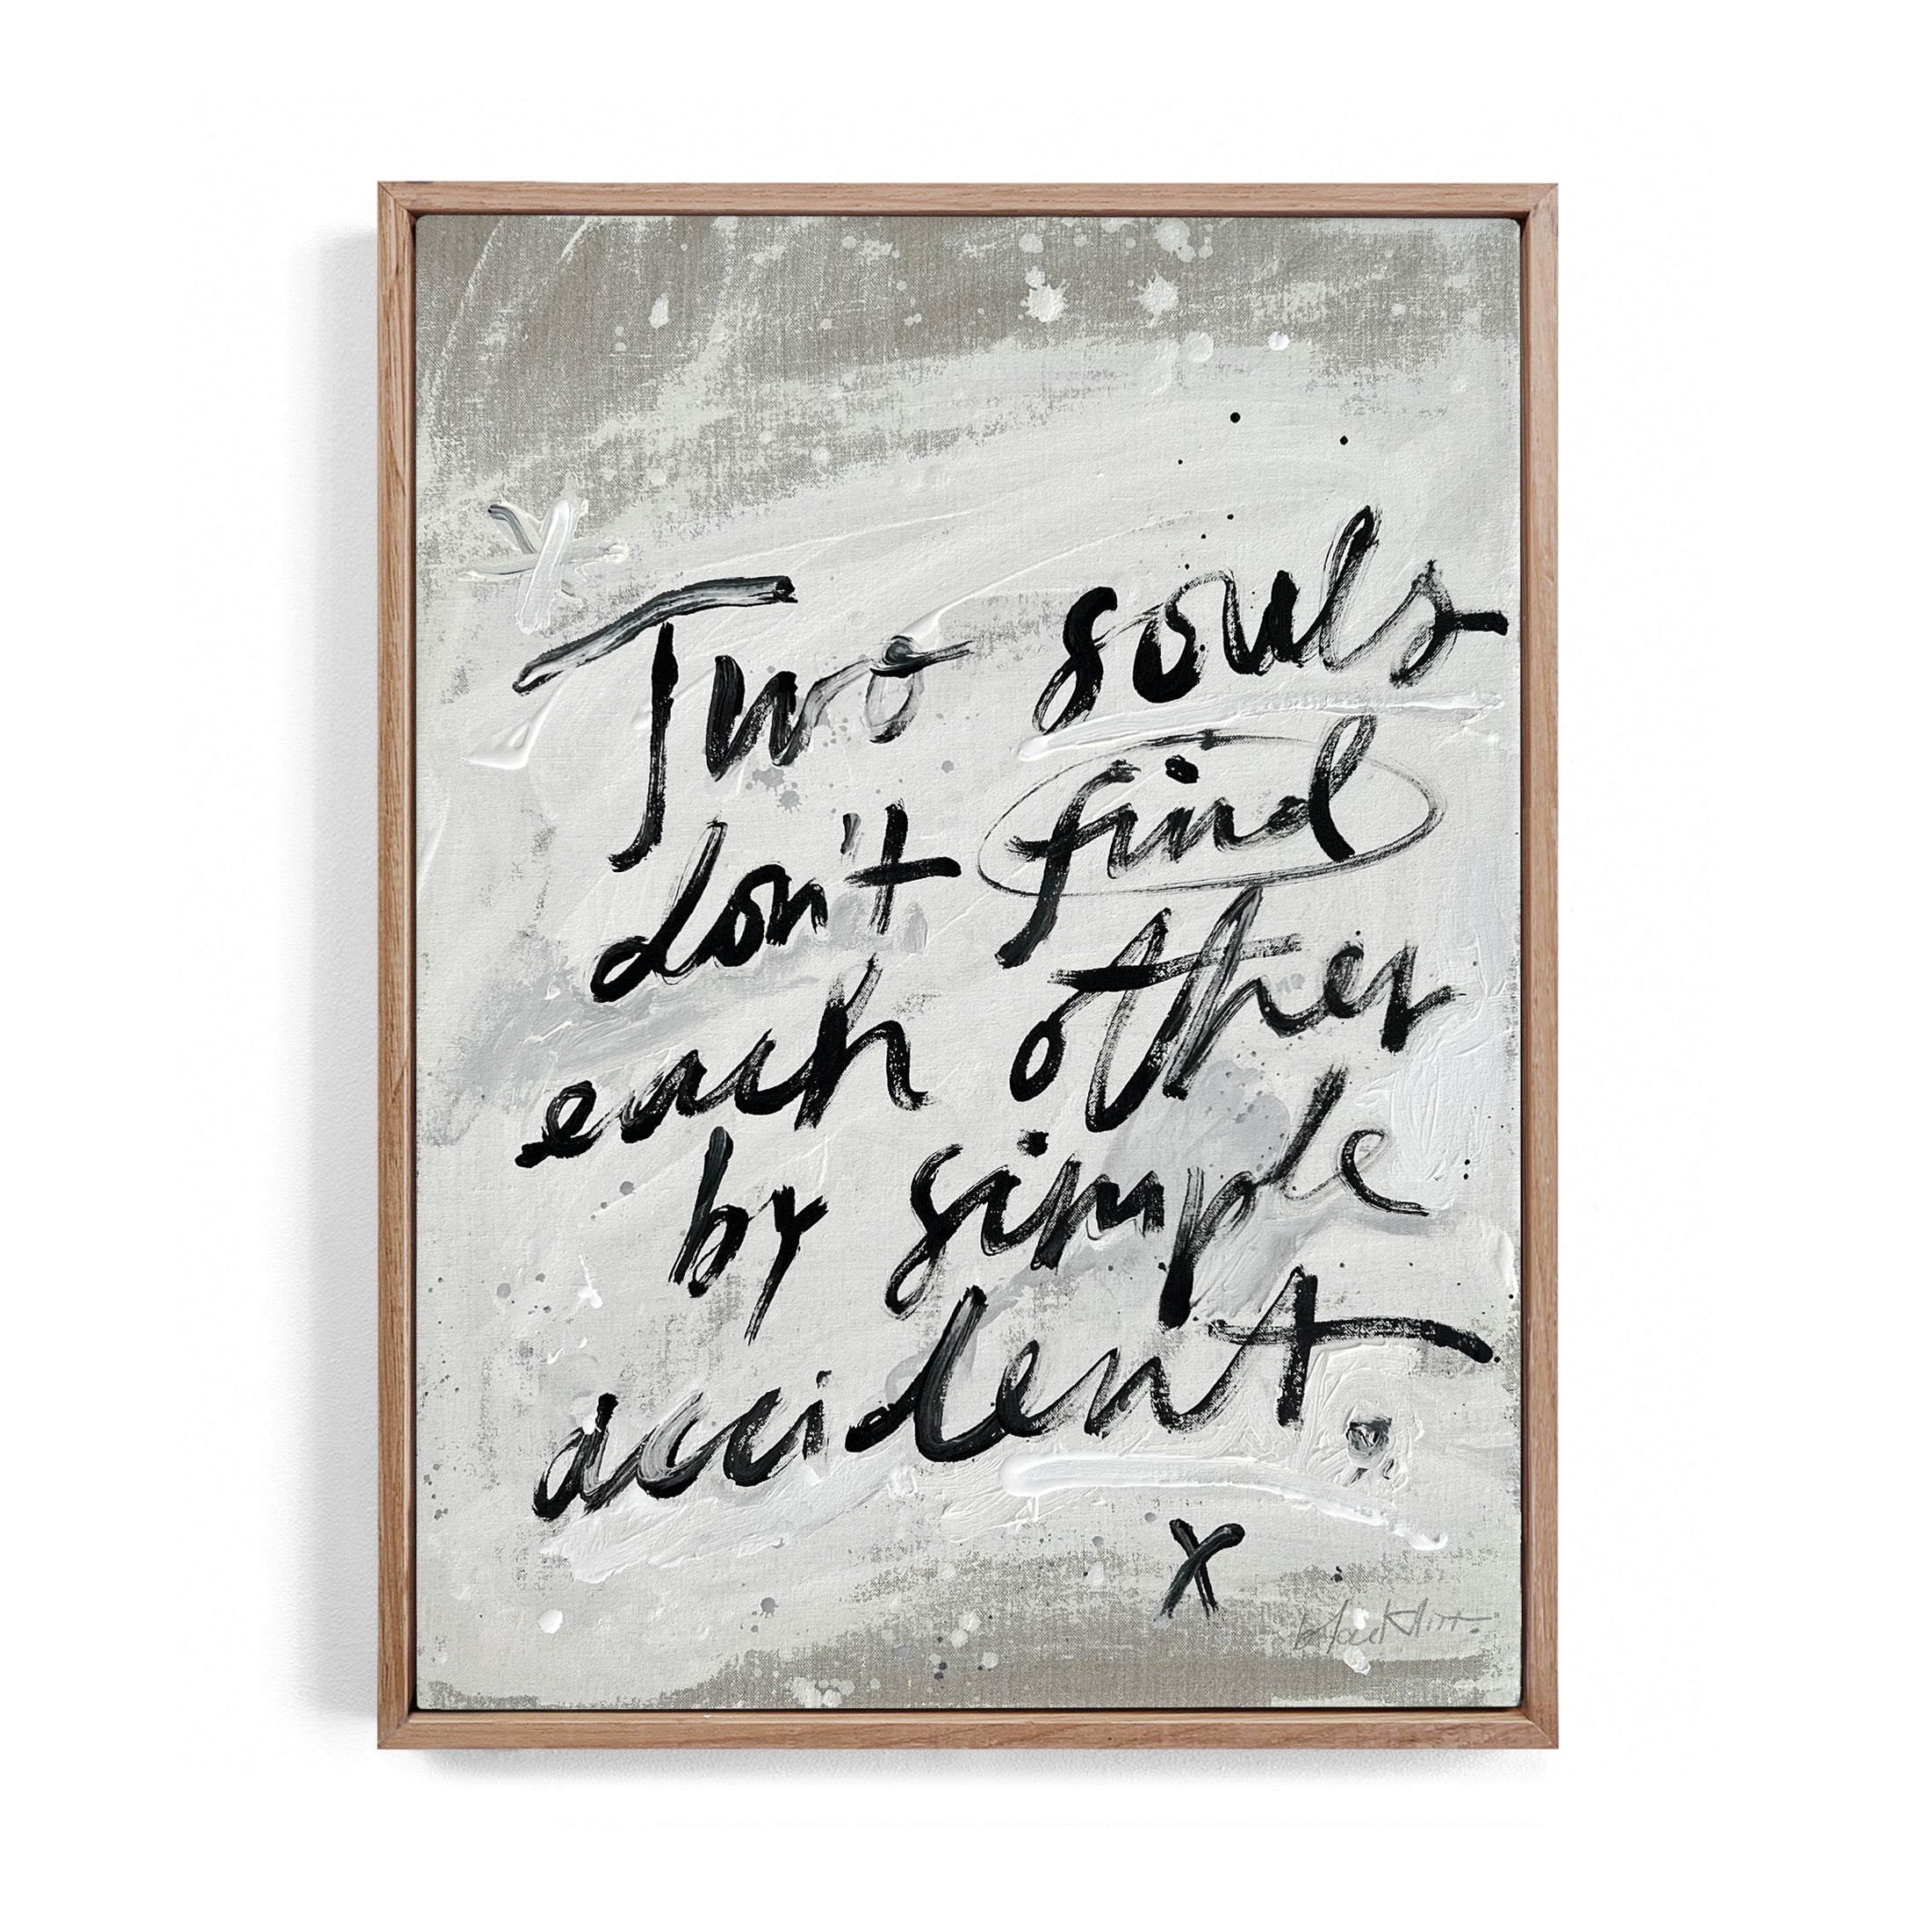 Two souls
don't find
each other
by simple
accident.
x